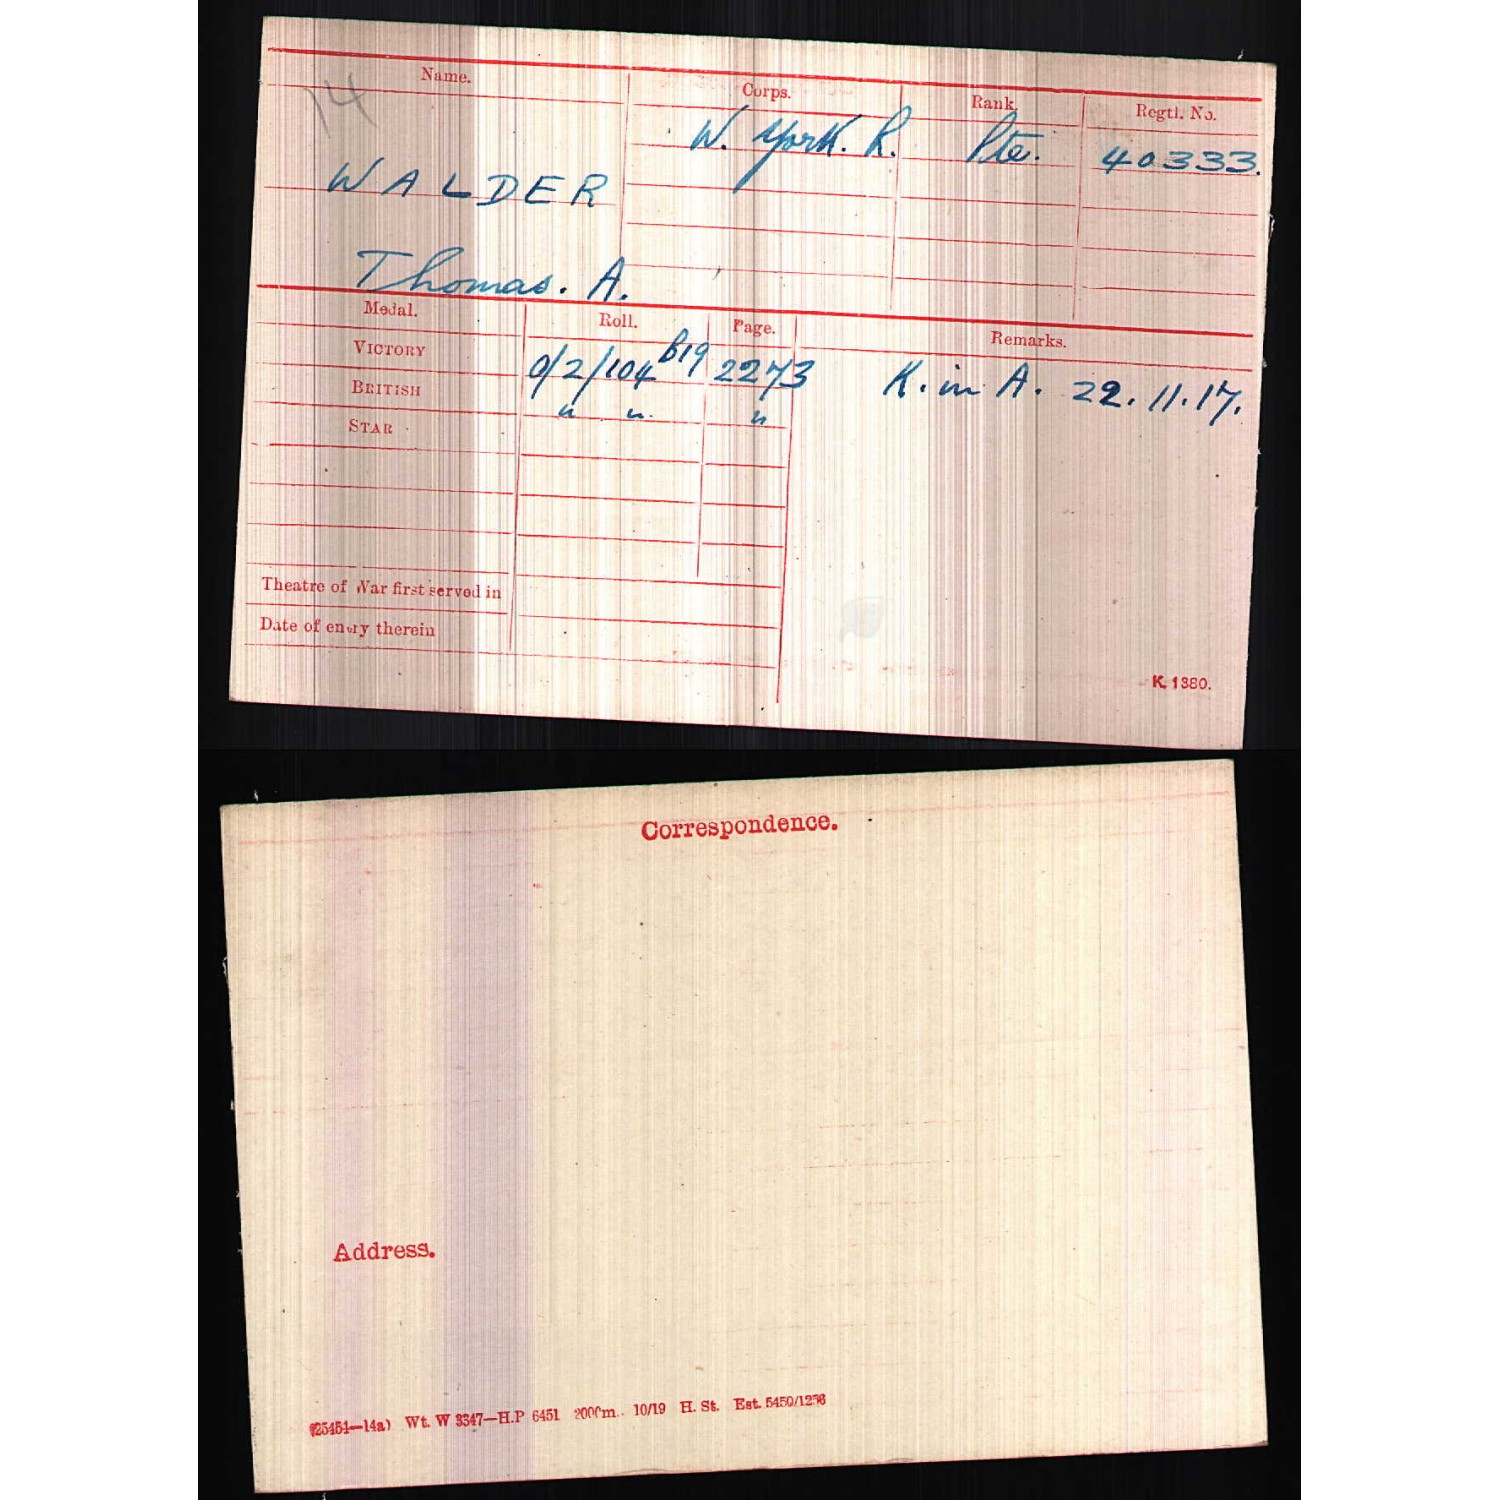 14
Name. Corps. Rank. Regtl. No.
W. York. R. Pte. 40333.
WALDER
Thomas. A.
Medal. Roll. Page. Remarks.
VICTORY 0/2/104 B19 2273 K. in A. 22.11.17.
BRITISH " " "
STAR
Theatre of War first served in
Date of entry therein
K. 1380.
Correspondence.
Address.
(25454—14a) Wt. W 3347—H.P 6451 2000m. 10/19 H. St. Est. 5450/1256